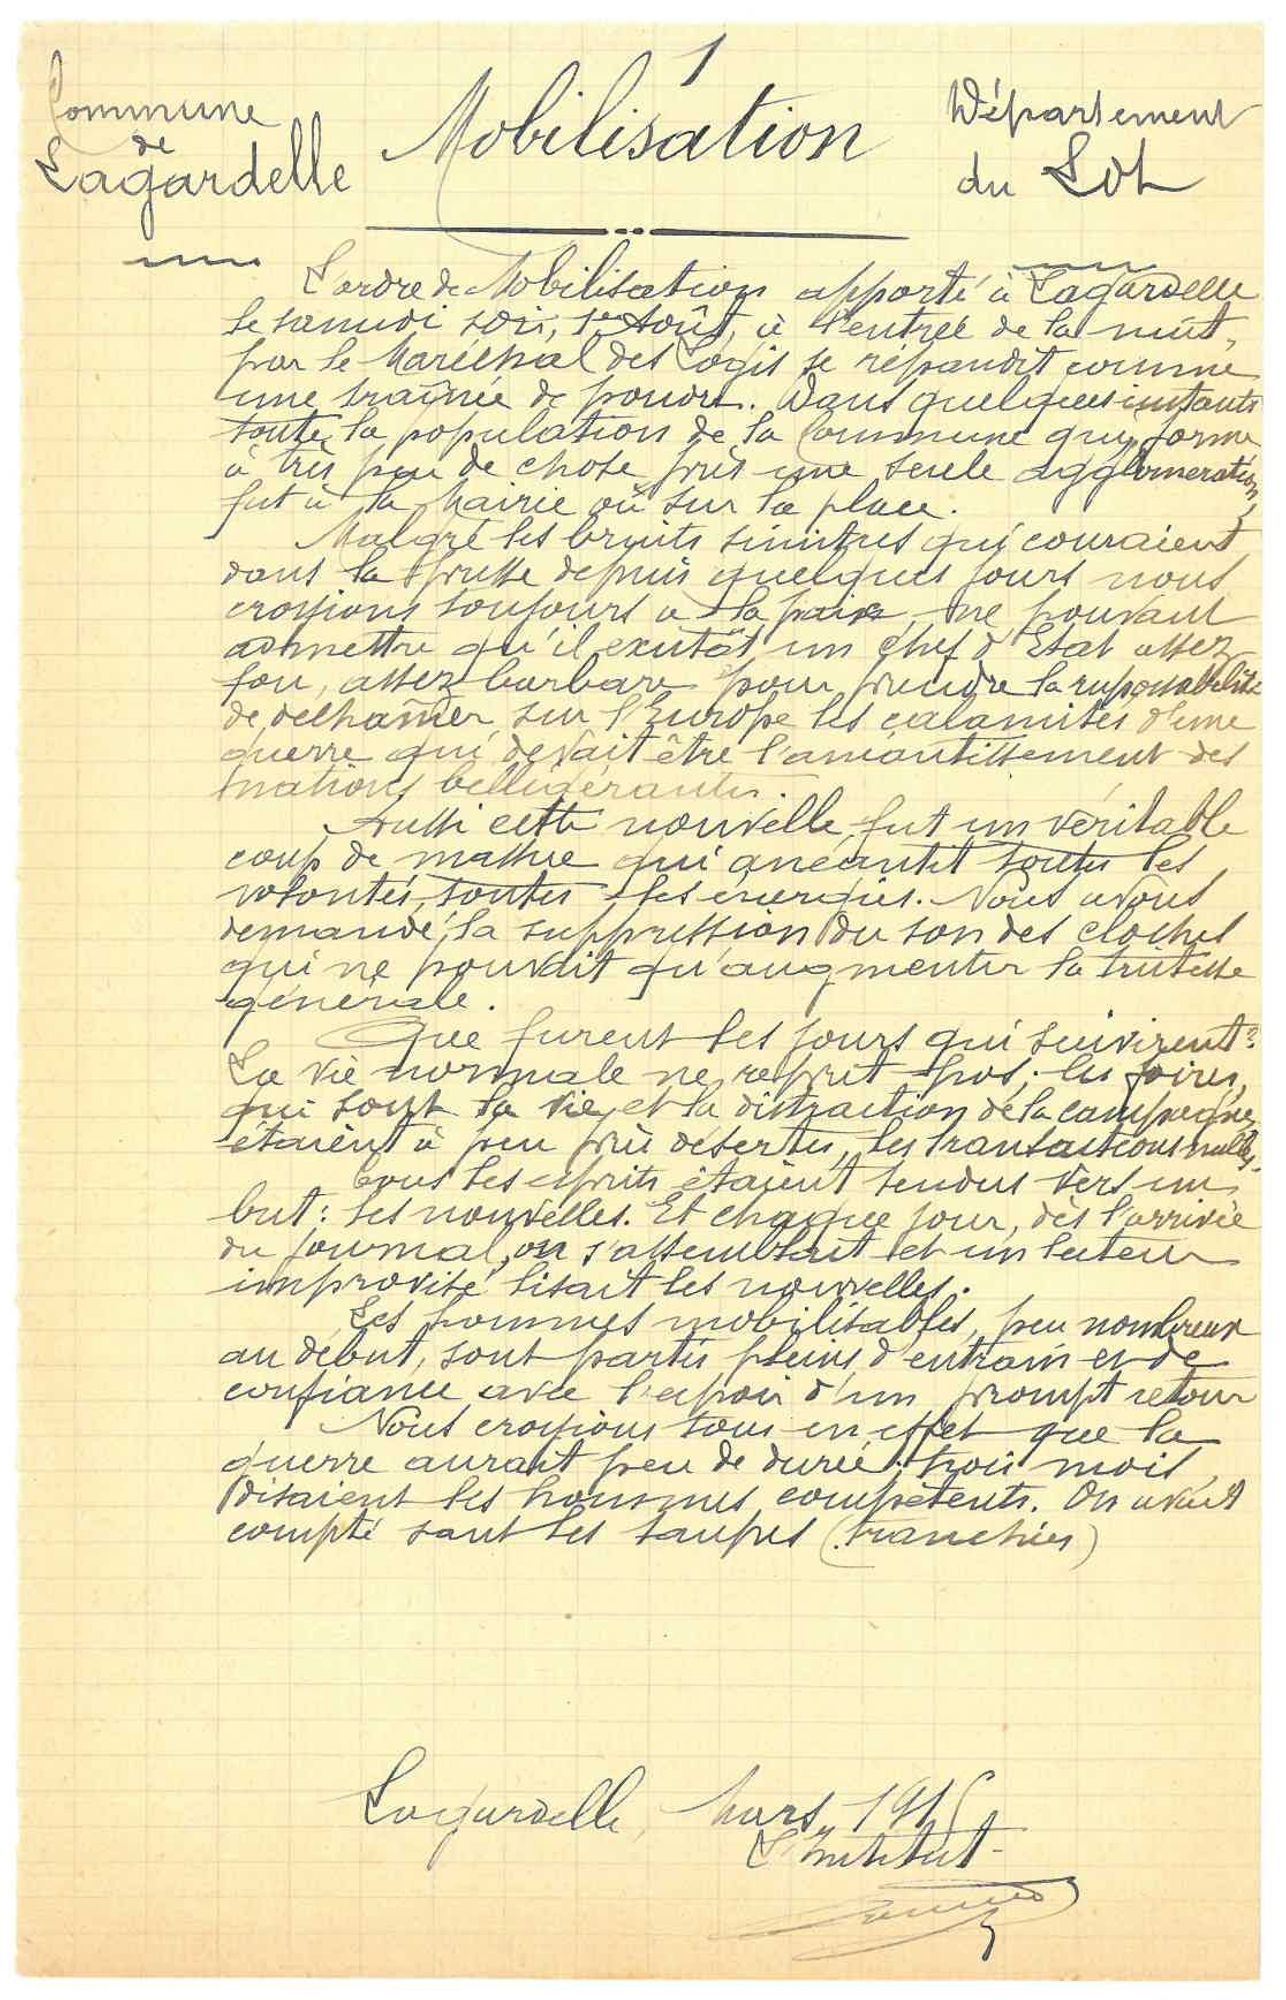 1
Commune
de
Lagardelle
Mobilisation
Département
du Lot
L'ordre de Mobilisation apporté à Lagardelle
le samedi soir, 1er Août, à l'entrée de la nuit,
par le Maréchal des Logis se répandit comme
une traînée de poudre. Dans quelques instants
toute la population de la Commune qui forme
à très peu de chose près une seule agglomération,
fut à la Mairie ou sur la place.
Malgré les bruits sinistres qui couraient
dans la presse depuis quelques jours nous
croyions toujours à la paix, ne pouvant
admettre qu'il existât un Chef d'Etat assez
fou, assez barbare pour prendre la responsabilité
de déchaîner sur l'Europe les calamités d'une
guerre qui devait être l'anéantissement des
nations belligérantes.
Aussi cette nouvelle fut un véritable
coup de massue qui anéantit toutes les
volontés, toutes les énergies. Nous avons
demandé la suppression du son des cloches
qui ne pouvait qu'augmenter la tristesse
générale.
Que furent les jours qui suivirent?
La vie normale ne reprit pas; les foires,
qui sont la vie et la distraction de la campagne,
étaient à peu près désertes, les transactions nulles.
Tous les esprits étaient tendus vers un
but: les nouvelles. Et chaque jour, dès l'arrivée
du journal, on s'assemblait et un lecteur
improvisé lisait les nouvelles.
Les hommes mobilisables, peu nombreux
au début, sont partis pleins d'entrain et de
confiance avec l'espoir d'un prompt retour
Nous croyions tous en effet que la
guerre aurait peu de durée; trois mois,
disaient les hommes compétents. On avait
compté sans les taupes (tranchées)
Lagardelle, Mars 1915
L'Institut-